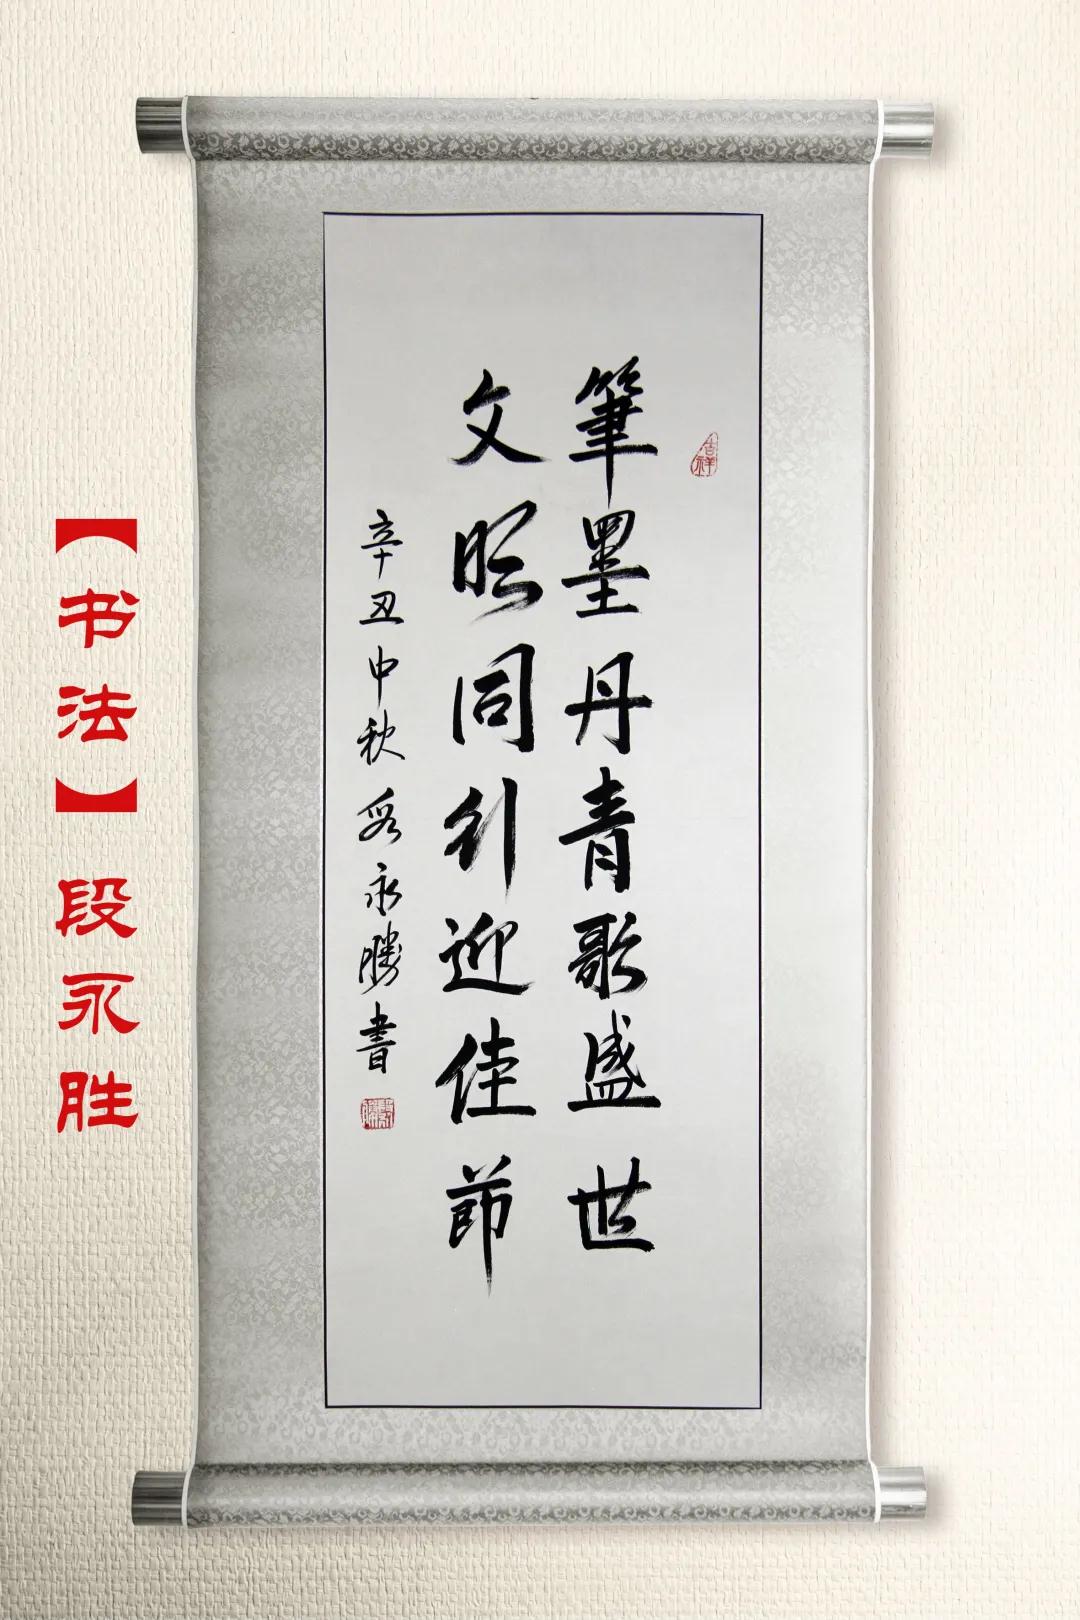 吉祥
筆墨丹青歌盛世
文同行迎佳節
辛丑中秋段永勝書
【书法】段永胜